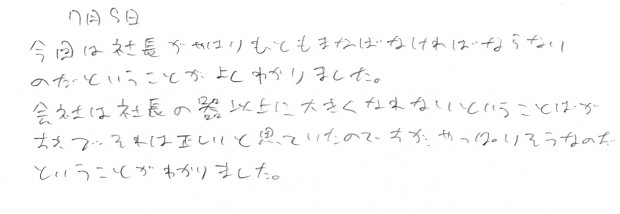 7月5日
今回は社長がやはりもともまなばなければならない
のだということがよくわかりました。
会社は社長の器以上に大きくなれないということばが
あって、それは正しいと思っていたのですが、やっぱりそうなのだ
ということがわかりました。